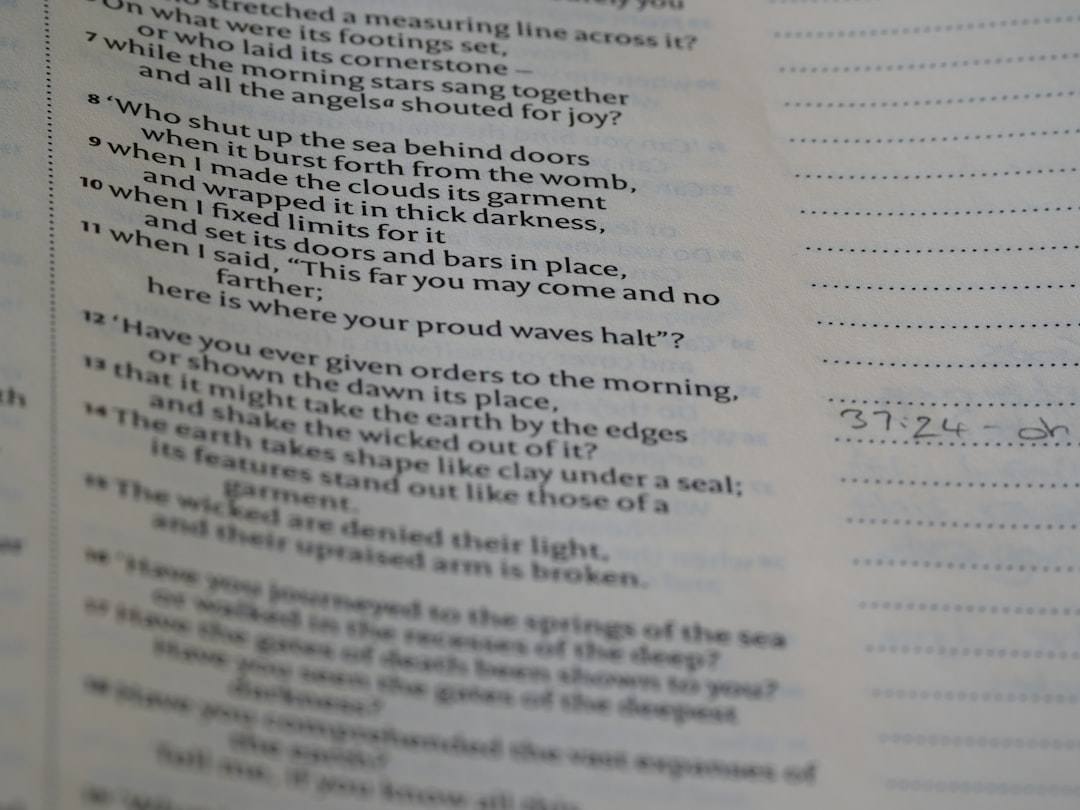 ely you
stretched a measuring line across it?
On what were its footings set,
or who laid its cornerstone –
7 while the morning stars sang together
and all the angelsª shouted for joy?
8 ‘Who shut up the sea behind doors
when it burst forth from the womb,
9 when I made the clouds its garment
and wrapped it in thick darkness,
10 when I fixed limits for it
and set its doors and bars in place,
11 when I said, “This far you may come and no
farther;
here is where your proud waves halt”?
12 ‘Have you ever given orders to the morning,
or shown the dawn its place,
13 that it might take the earth by the edges
and shake the wicked out of it?
14 The earth takes shape like clay under a seal;
its features stand out like those of a
garment.
15 The wicked are denied their light,
and their upraised arm is broken.
16 ‘Have you journeyed to the springs of the sea
or walked in the recesses of the deep?
17 Have the gates of death been shown to you?
Have you seen the gates of the deepest
darkness?
18 Have you comprehended the vast expanses of
the earth?
Tell me, if you know all this.
37:24 - oh